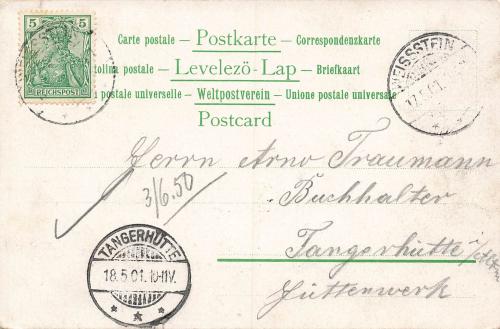 5 5
REICHSPOST
Carte postale — Postkarte — Correspondenzkarte
tolina postale — Levelező-Lap — Briefkaart
postale universelle — Weltpostverein — Union postale universale
Postcard
WEISSSTEIN
17.5.01.
Herrn Arno Traumann
Buchhalter
Tangerhütte
Hüttenwerk
3/6.50
TANGERHÜTTE
18.5.01.10-11V.